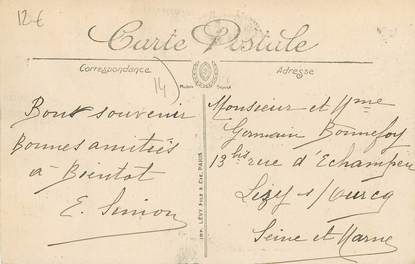 12-6
Carte Postale
Correspondance
Adresse
14
Bons souvenir
Bonnes amitiés
à Bientot
E. Simon
IMP. LÉVY FILS & CIE, PARIS
Monsieur et Mme
Germain Bonnefoy
13 bis rue d'Echampeu
Lizy s/ Ourcq
Seine et Marne